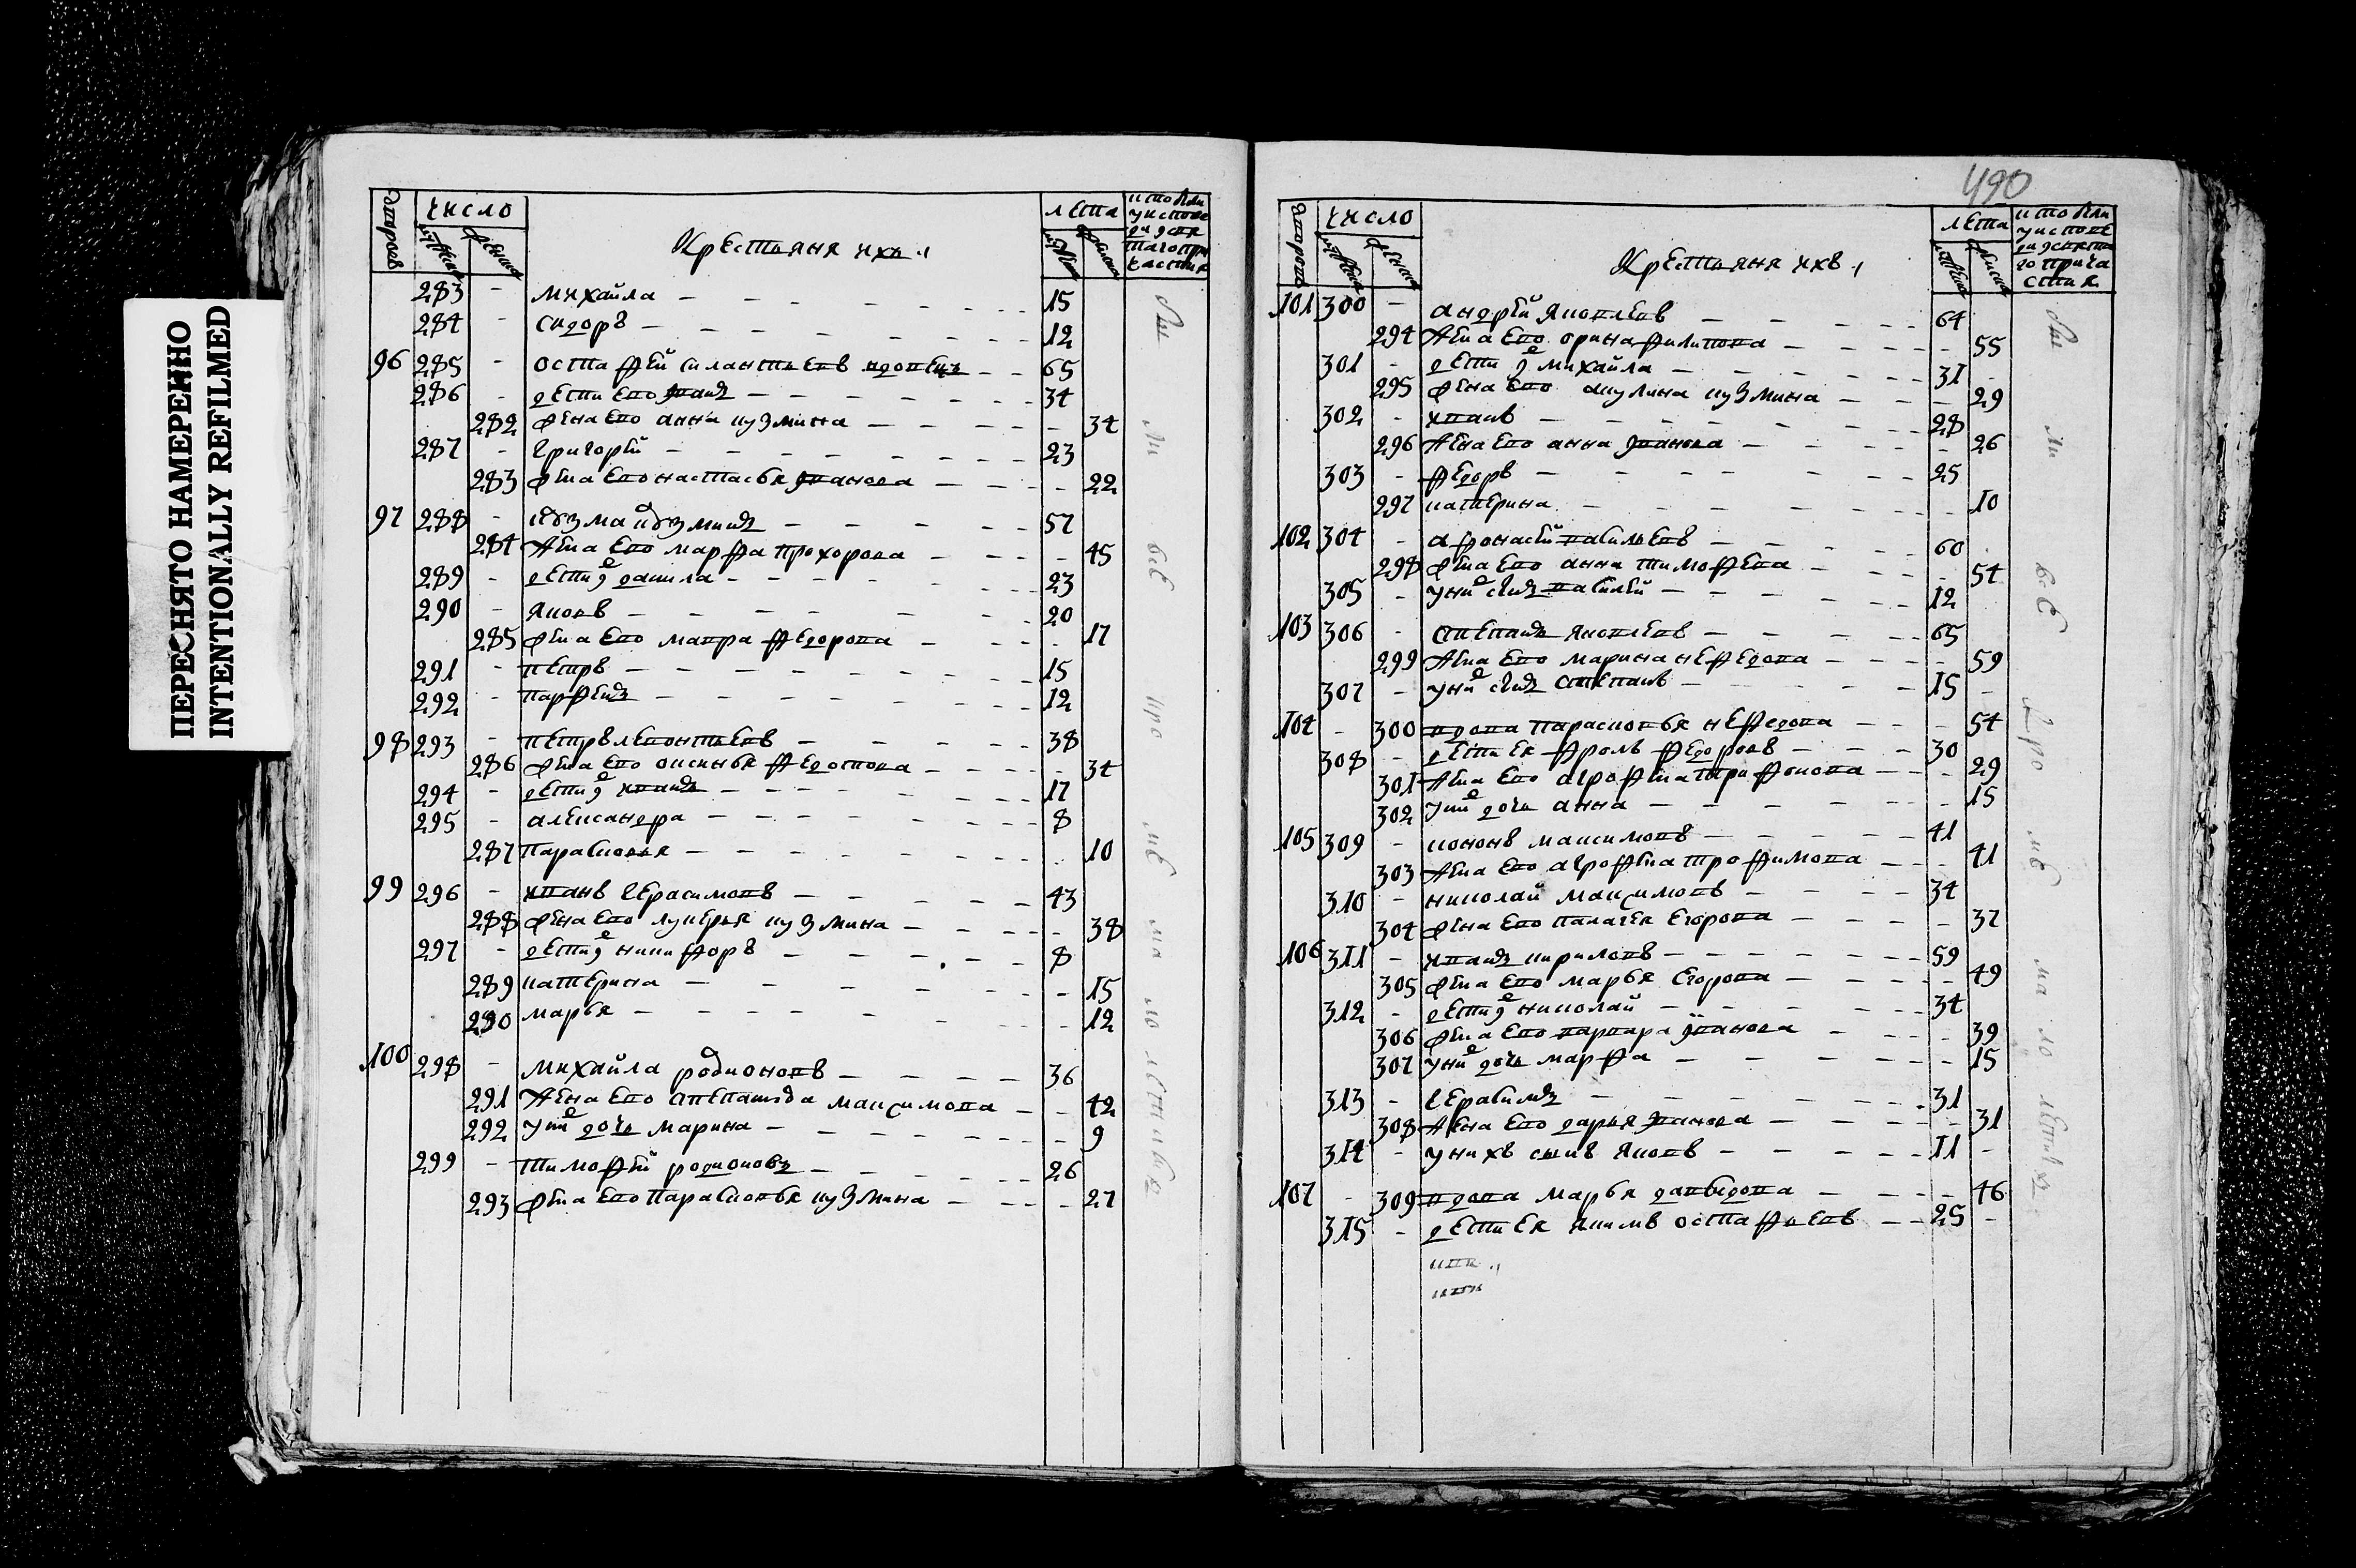 ПЕРЕСНЯТО НАМЕРЕННО
INTENTIONALLY REFILMED
число
Крестьяня ихъ
лета
283 - михайла - 15
284 - сидоръ - 12
96 285 - остафей силантьевъ вдовецъ - 65
286 - дети ево иванъ - 34
282 жена ево анна кузмина - 34
287 - григорей - 23
283 жена ево настасья иванова - 22
97 288 - кузма кузминъ - 57
284 жена ево марфа прохорова - 45
289 - дети данила - 23
290 - яковъ - 20
285 жена ево мавра федорова - 17
291 - петръ - 15
292 - парфенъ - 12
98 293 - петръ леонтьевъ - 38
286 жена ево аксинья федотова - 34
294 - дети иванъ - 17
295 - александра - 8
287 парасковья - 10
99 296 - иванъ герасимовъ - 43
288 жена ево лукерья кузмина - 38
297 - дети никифоръ - 8
289 катерина - 15
290 марья - 12
100 298 - михайла родионовъ - 36
291 жена ево степанида максимова - 42
292 у них дочь марина - 9
299 - тимофей родионовъ - 26
293 жена ево парасковья кузмина - 27
490
число
Крестьяня ихъ
лета
101 300 - андрей яковлевъ - 64
294 жена ево орина филипова - 55
301 - дети михайла - 31
295 жена ево акулина кузмина - 29
302 - иванъ - 28
296 жена ево анна иванова - 26
303 - федоръ - 25
297 катерина - 10
102 304 - афонасей васильевъ - 60
298 жена ево анна тимофева - 54
305 - у них сынъ василей - 12
103 306 - степанъ яковлевъ - 65
299 жена ево марина нефедова - 59
307 - у них сынъ степанъ - 15
104 - 300 вдова парасковья нефедова - 54
308 - дети ея фролъ федоровъ - 30
301 жена ево агрофена трифонова - 29
302 у них дочь анна - 15
105 309 - кононъ максимовъ - 41
303 жена ево агрофена трофимова - 41
310 - николай максимовъ - 34
304 жена ево палагея егорова - 37
106 311 - иванъ кириловъ - 59
305 жена ево марья егорова - 49
312 - дети николай - 34
306 жена ево варвара иванова - 39
307 у них дочь марфа - 15
313 - герасимъ - 31
308 жена ево дарья иванова - 31
314 - у них сынъ яковъ - 11
107 - 309 вдова марья давыдова - 46
315 - дети ея якимъ остафьевъ - 25